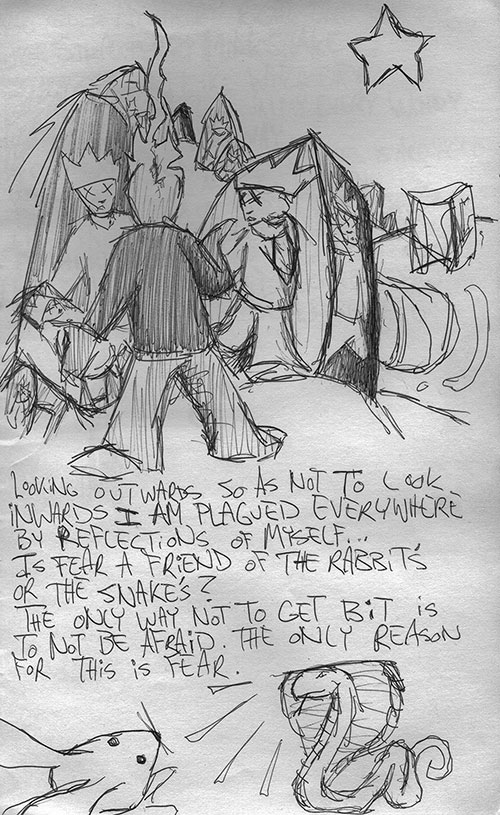 LOOKING OUTWARDS SO AS NOT TO LOOK
INWARDS I AM PLAGUED EVERYWHERE
BY REFLECTIONS OF MYSELF...
IS FEAR A FRIEND OF THE RABBIT'S
OR THE SNAKE'S?
THE ONLY WAY NOT TO GET BIT IS
TO NOT BE AFRAID. THE ONLY REASON
FOR THIS IS FEAR.